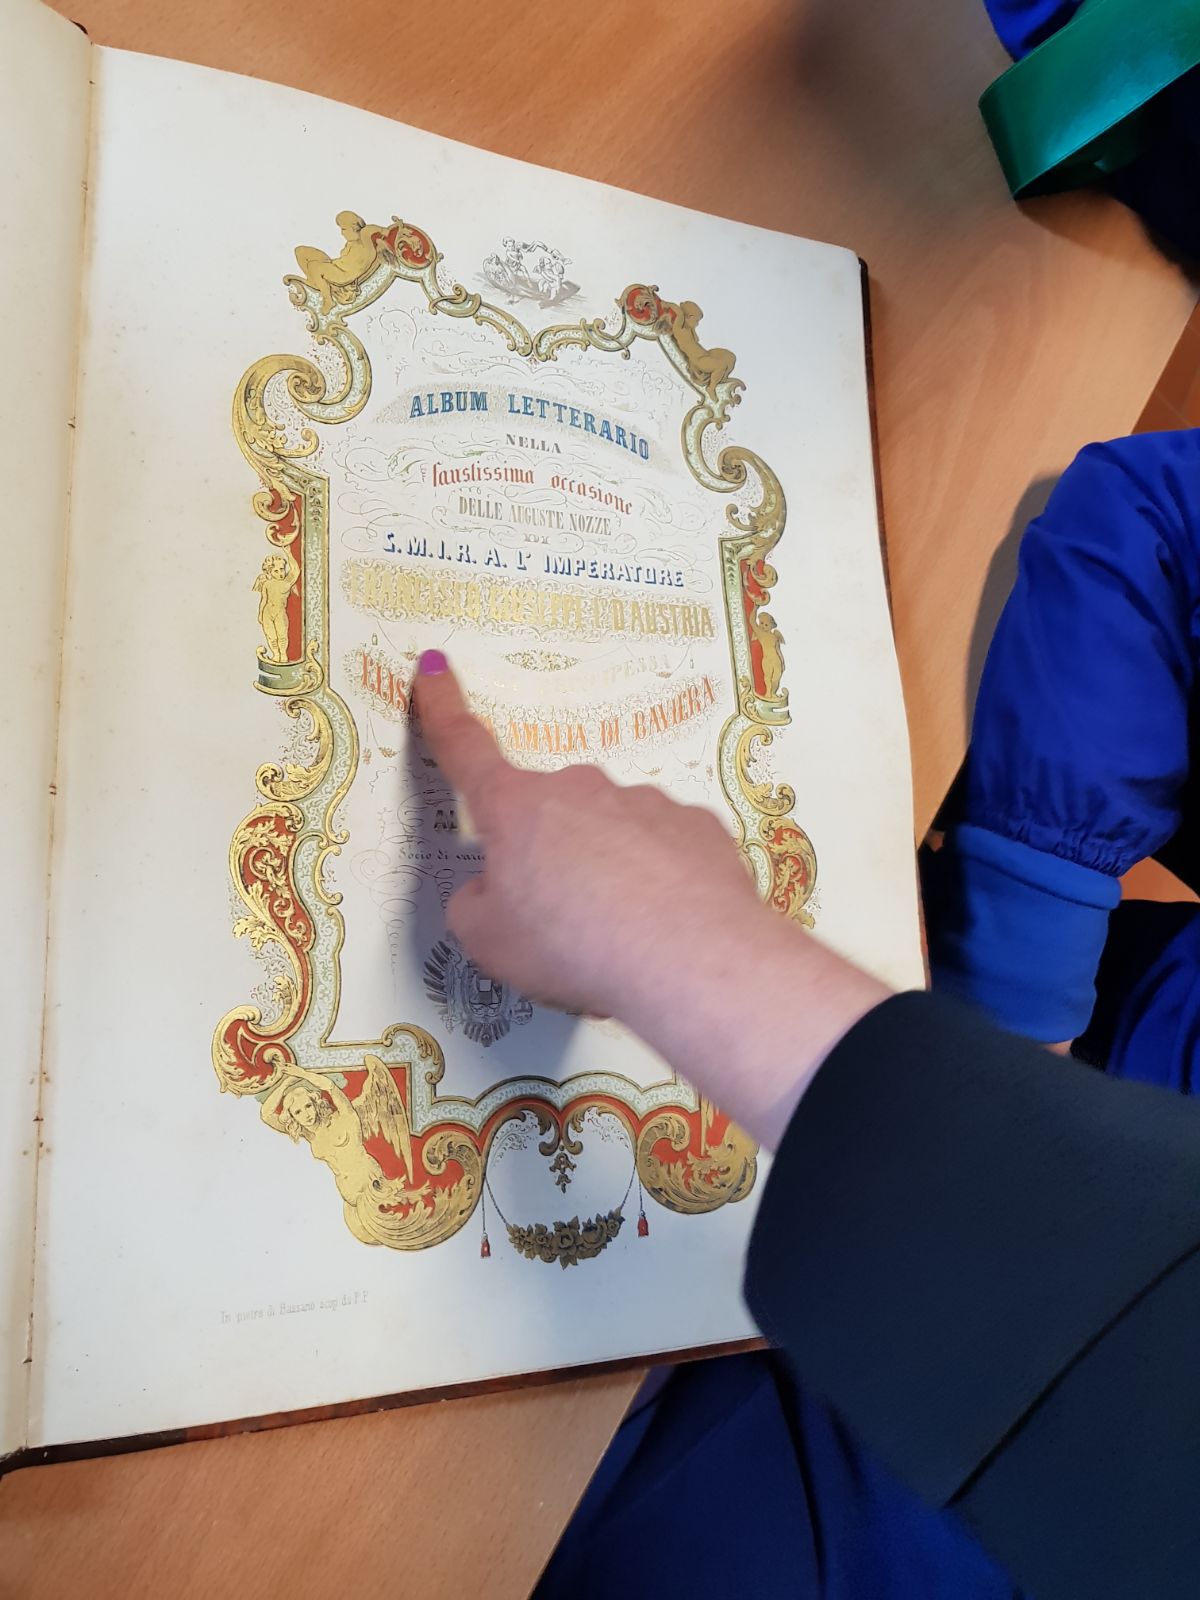 ALBUM LETTERARIO
NELLA
faustissima occasione
DELLE AUGUSTE NOZZE
DI
S.M.I.R.A. L'IMPERATORE
FRANCESCO GIUSEPPE I.° D'AUSTRIA
AMALIA DI BAVIERA
Socio di varie
In pietra di Bassano